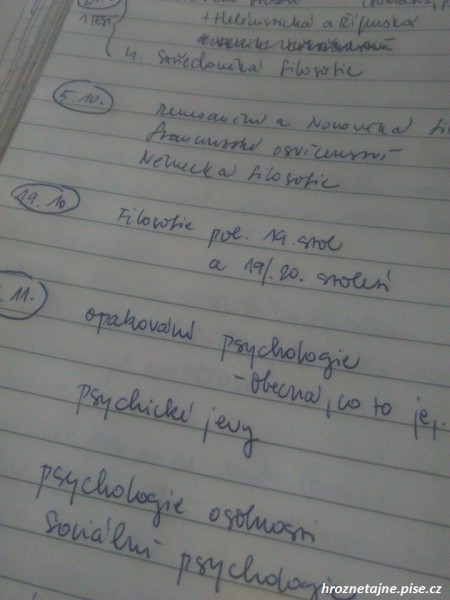 + Helénistická a Římská
4. Středověká filosofie
5.10.
Renesanční a Novověká
francouzské osvícenství
Německá filosofie
19.10
Filosofie pol. 19. stol
a 19/.20. století
11.
opakování psychologie
- obecná, co to je,
psychické jevy
psychologie osobnosti
Sociální psychologie
hroznetajne.pise.cz